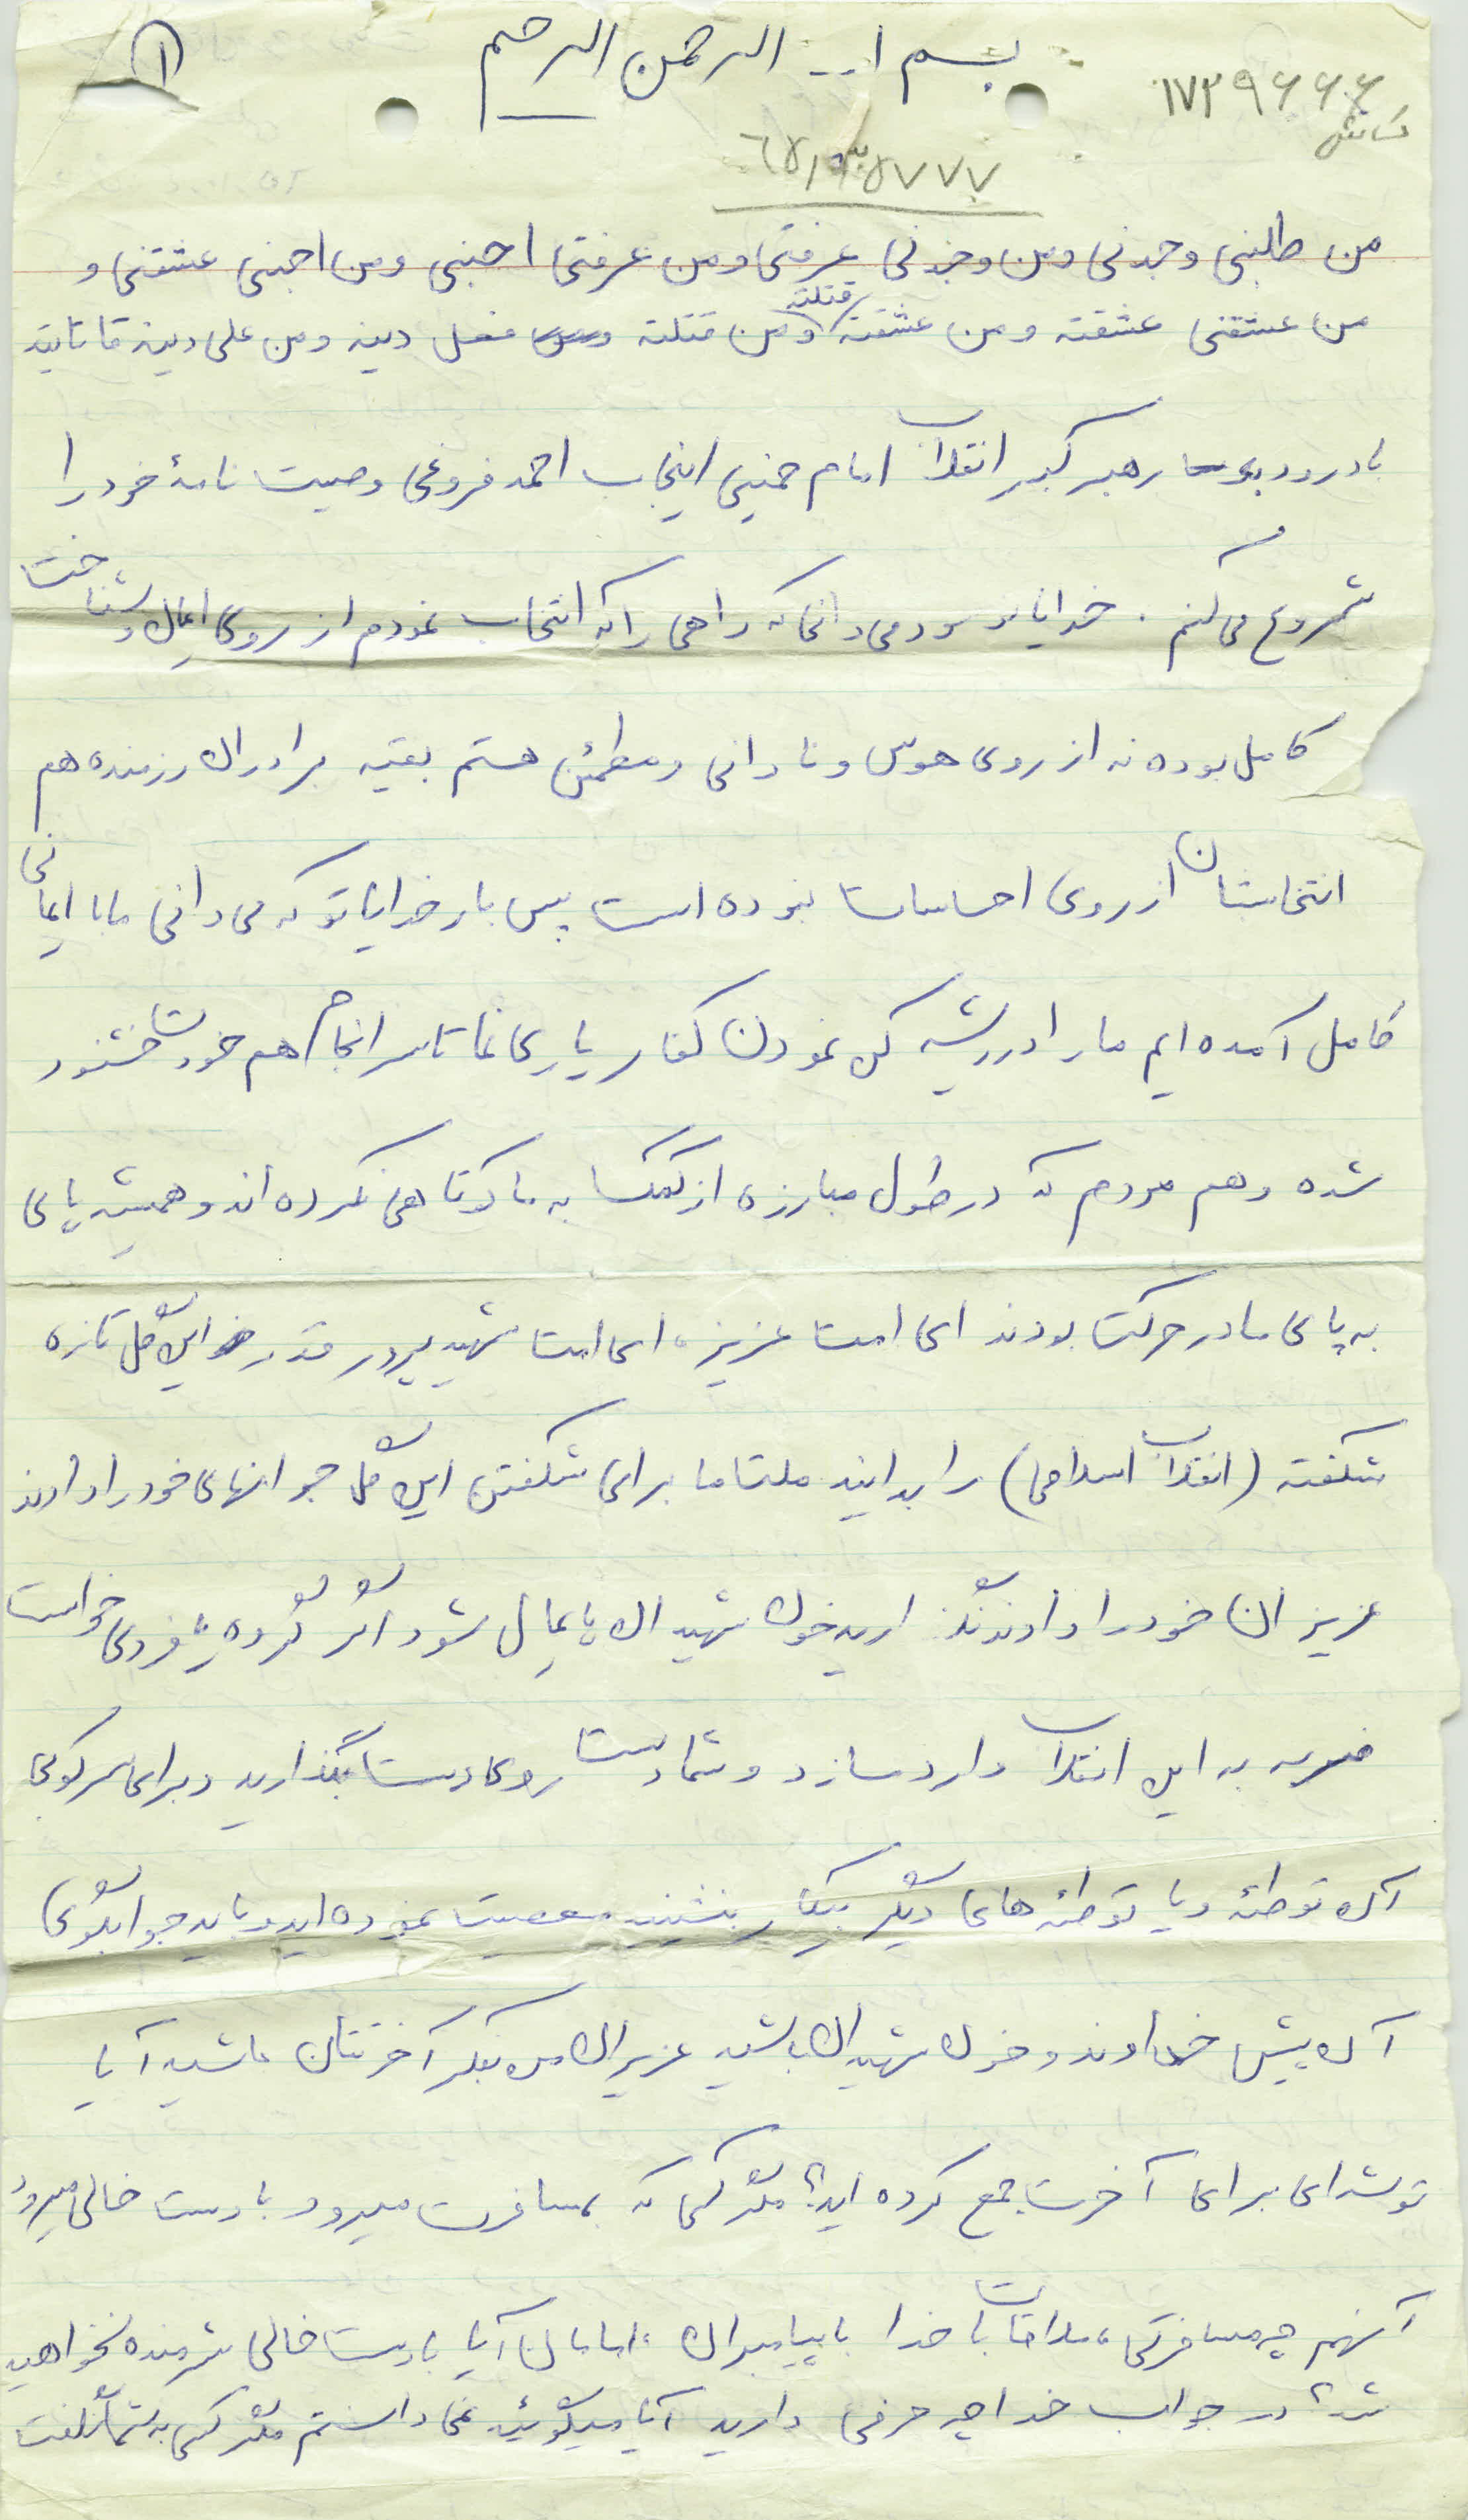 ۱
بسم ا... الرحمن الرحیم
۱۷۳۹۶۶۶
من طلبنی وجدنی ومن وجدنی عرفنی ومن عرفنی احبنی ومن احبنی عشقنی و
من عشقنی عشقته ومن عشقته قتلته ومن قتلته فعلی دیته ومن علی دیته فانا دیته
با درود بر رهبر کبیر انقلاب امام خمینی اینجانب احمد فروغی وصیت نامهٔ خود را
شروع می کنم . خدایا تو خود می دانی که راهی را که انتخاب نمودم از روی ایمان و شناخت
کامل بوده نه از روی هوس و نادانی و مطمئن هستم بقیه برادران رزمنده هم
انتخابشان از روی احساسات نبوده است پس بار خدایا تو که می دانی ما با ایمانی
کامل آمده ایم ما را در ریشه کن نمودن کفار یاری نما تا سرانجام هم خودت خشنود
شده و هم مردم که در طول مبارزه از کمک به ما کوتاهی نکرده اند و همیشه پای
به پای ما در حرکت بودند ای امت عزیز، ای امت شهید پرور قدر این گل تازه
شکفته (انقلاب اسلامی) را بدانید ملت ما برای شکفتن این گل جوانهای خود را دادند
عزیزان خود را دادند نگذارید خون شهیدان پایمال شود اگر گروه یا فردی خواست
ضربه به این انقلاب وارد سازد و شما دست روی دست بگذارید و برای سرکوبی
آن توطئه و یا توطئه های دیگر بیکار بنشینید معصیت نموده اید و باید جوابگوی
آن پیش خداوند و خون شهیدان باشید عزیزان من بفکر آخرتتان باشید آیا
توشه ای برای آخرت جمع کرده اید؟ مگر کسی که بمسافرت میرود با دست خالی میرود
آنهم چه مسافرتی، ملاقات با خدا با پیامبران، امامان آیا با دست خالی شرمنده نخواهید
شد؟ در جواب خدا چه حرفی دارید آیا میگوئید نمی دانستم مگر کسی به شما نگفت